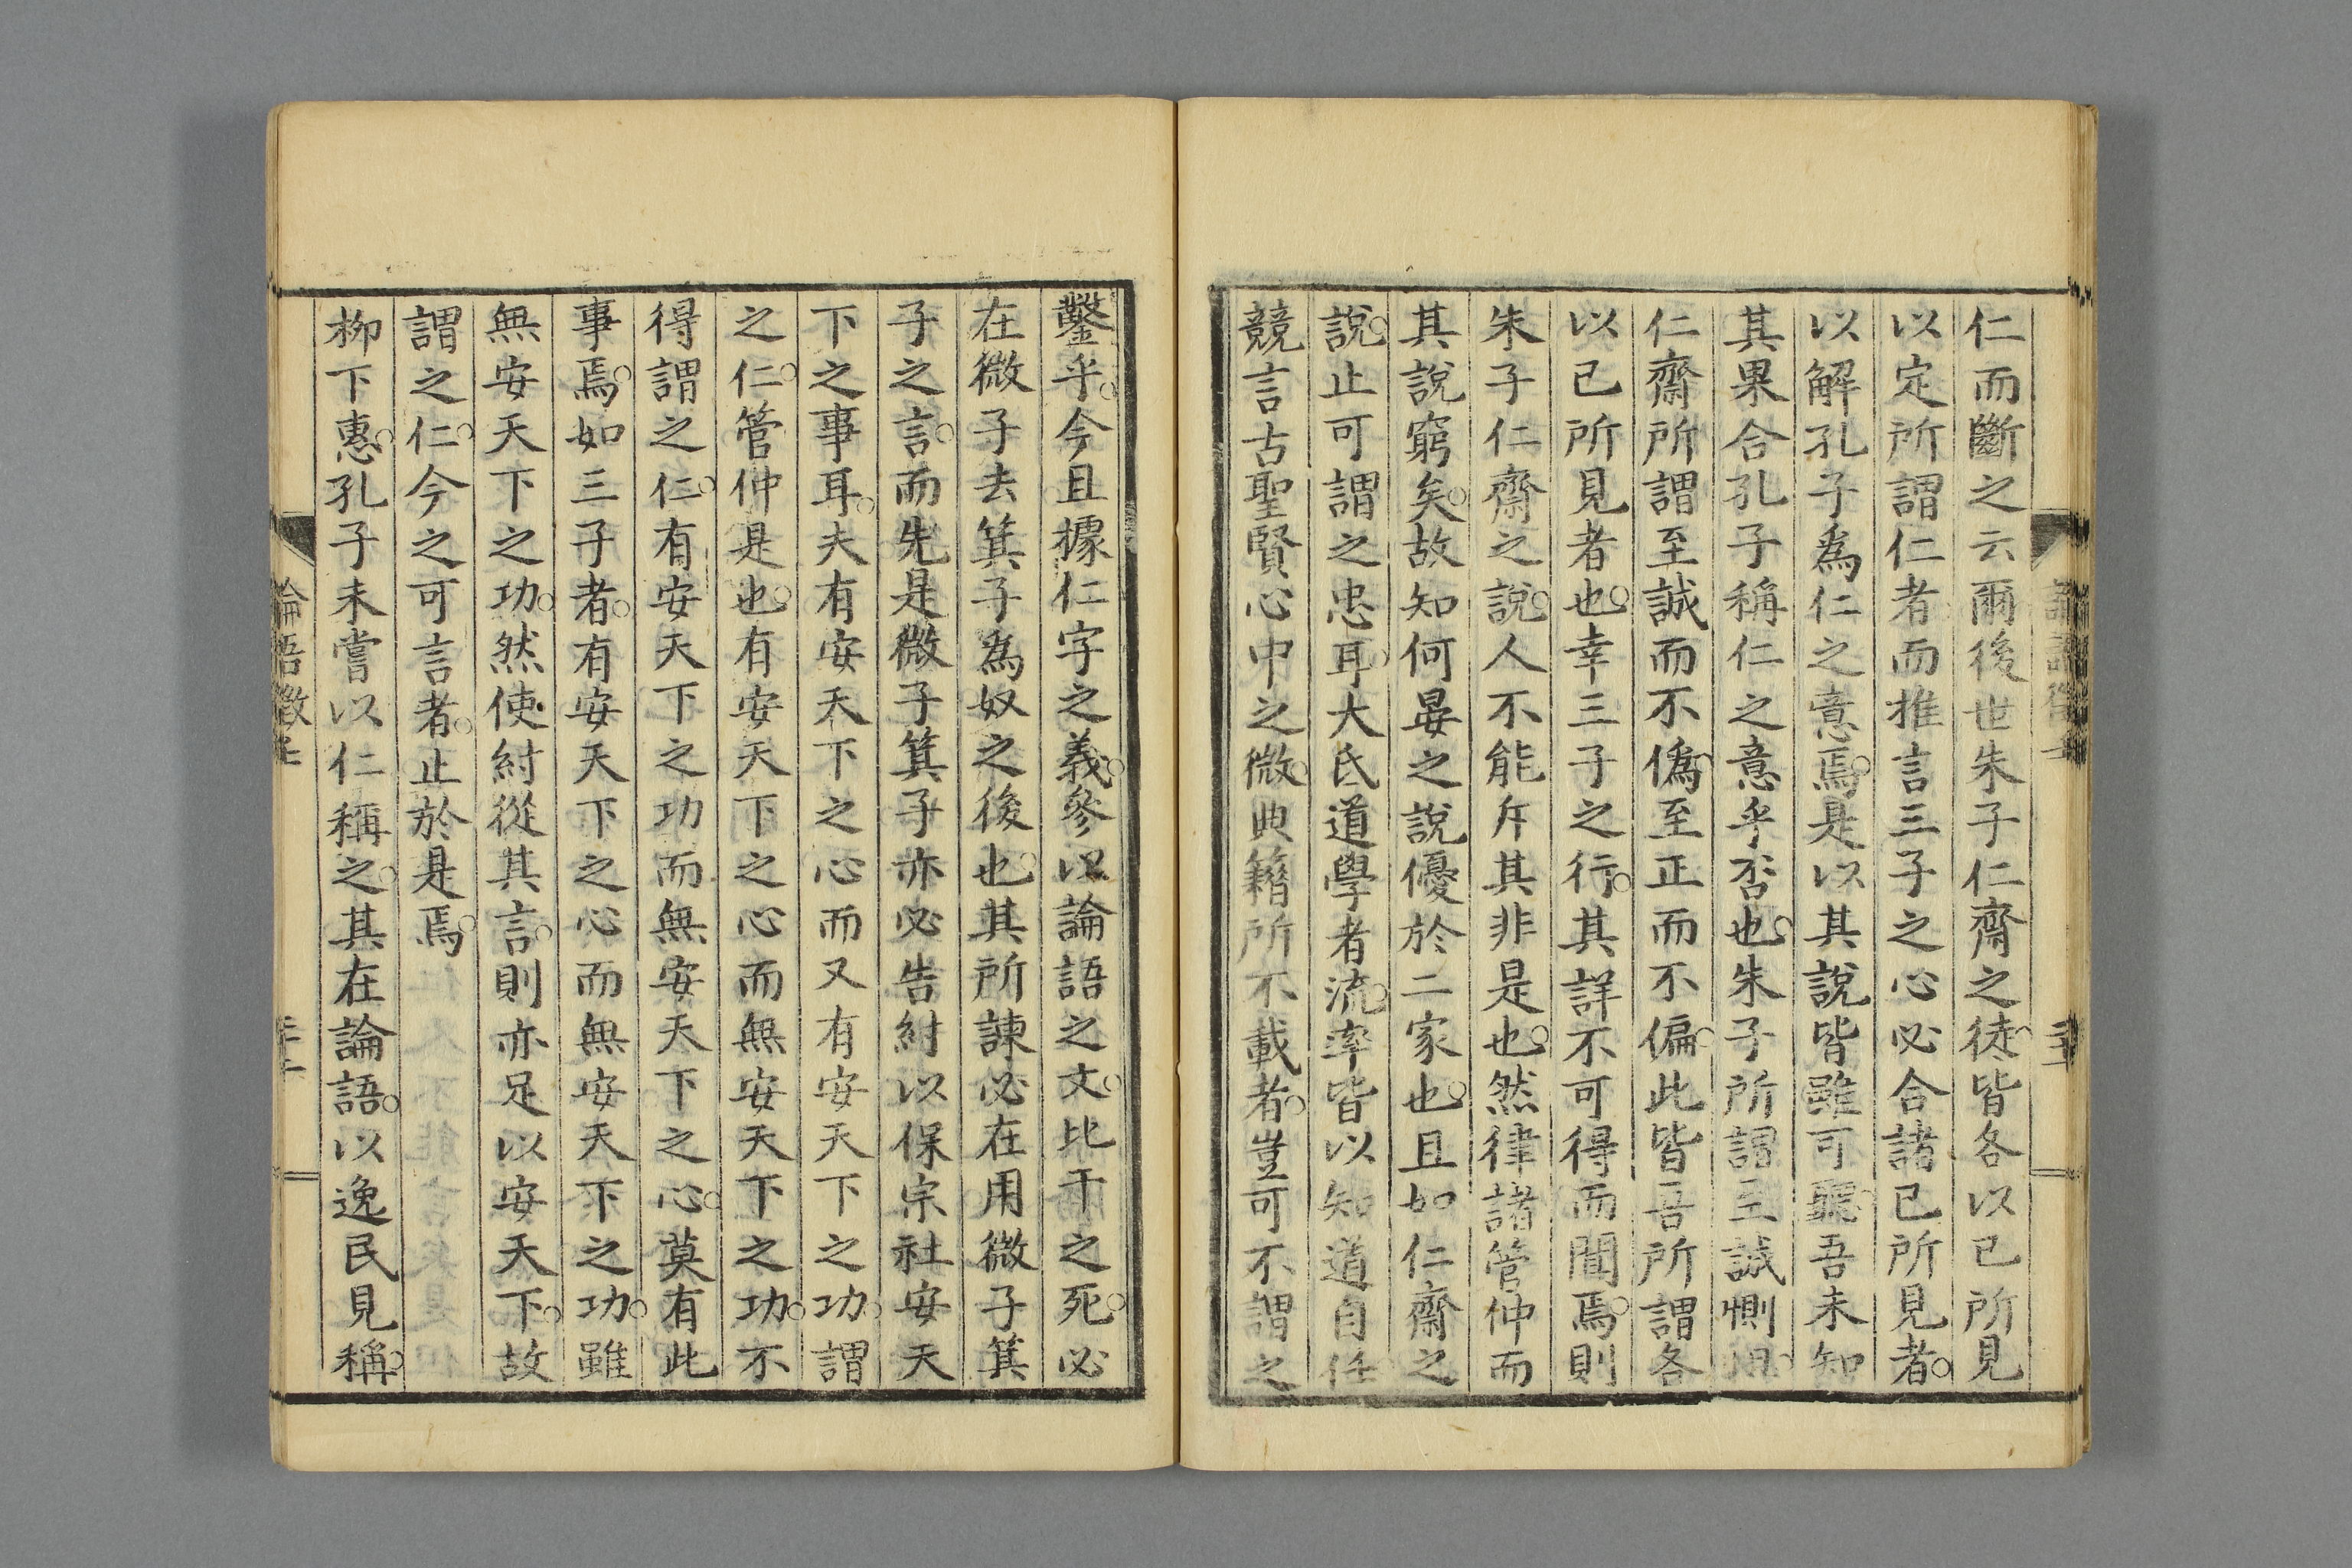 仁而斷之云爾後世朱子仁齋之徒。皆各以己所見
以定所謂仁者而推言三子之心必合諸己所見者。
以解孔子爲仁之意焉。是以其說皆雖可聽。吾未知
其果合孔子稱仁之意乎否也。朱子所謂至誠惻怛。
仁齋所謂至誠而不僞。至正而不偏。此皆吾所謂各
以己所見者也。幸三子之行。其詳不可得而聞焉。則
朱子仁齋之說。人不能斥其非是也。然律諸管仲而
其說窮矣。故知何晏之說優於二家也。且如仁齋之
說。止可謂之忠耳。大氐道學者流。率皆以知道自任
競言古聖賢心中之微。典籍所不載者。豈可不謂之
鑿乎。今且據仁字之義。參以論語之文。比干之死。必
在微子去箕子爲奴之後也。其所諫必在用微子箕
子之言。而先是微子箕子亦必告紂以保宗社安天
下之事耳。夫有安天下之心而又有安天下之功。謂
之仁。管仲是也。有安天下之心而無安天下之功。不
得謂之仁。有安天下之功而無安天下之心。莫有此
事焉。如三子者。有安天下之心而無安天下之功。雖
無安天下之功。然使紂從其言。則亦足以安天下。故
謂之仁。今之可言者。止於是焉。
柳下惠。孔子未嘗以仁稱之。其在論語。以逸民見稱。
論語徵壬